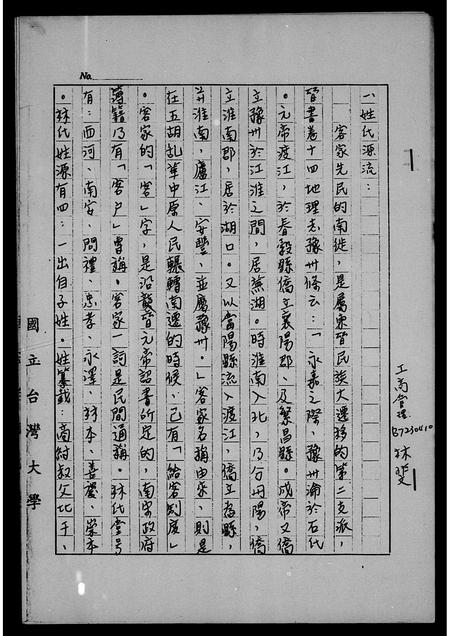 No.
一、姓氏源流：
客家先民的南徙，是屬東晉民族大遷移的第二支派，
晉書卷十四地理志豫州條云：「永嘉之際，豫州淪於石氏
。元帝渡江，於春穀縣僑立襄陽郡、及繁昌縣。成帝又僑
立豫州於江淮之間，居蕪湖。時淮南入北，乃分丹陽，僑
立淮南郡，居於湖口。又以當陽縣流入渡江，僑立為縣，
并淮南，廬江、安豐，並屬豫州。」客家名稱由來，則是
在五胡乱華中原人民輾轉南遷的時候，已有「給客制度」
。客家的「客」字，是沿襲晉元帝詔書所定的，南宋政府
簿籍乃有「客户」曾稱。客家一詞是民間通稱。林氏堂号
有：西河、南安、問禮、忠孝、永澤、林本、善慶、崇本
。林氏姓源有四：一出自子姓。姓纂載：商紂叔父比干、
工商管理
B7230410
林斐
國立台灣大學